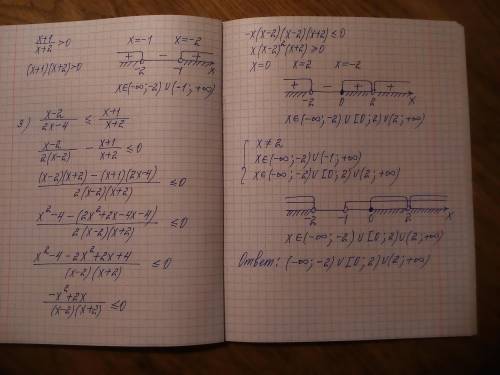 (x+1)/(x+2) > 0
x=-1 x=-2
(x+1)(x+2)>0
+ − +
-2 -1 x
x∈(-∞;-2)∪(-1;+∞)
3) (x-2)/(2x-4) ≤ (x+1)/(x+2)
(x-2)/(2(x-2)) - (x+1)/(x+2) ≤0
((x-2)(x+2) - (x+1)(2x-4))/(2(x-2)(x+2)) ≤0
(x²-4-(2x²+2x-4x-4))/(2(x-2)(x+2)) ≤0
(x²-4-2x²+2x+4)/((x-2)(x+2)) ≤0
(-x²+2x)/((x-2)(x+2)) ≤0
-x(x-2)(x-2)(x+2)≤0
x(x-2)²(x+2)≥0
x=0 x=2 x=-2
+ − + +
-2 0 2 x
x∈(-∞;-2)∪[0;2)∪(2;+∞)
{ x≠2
x∈(-∞;-2)∪(-1;+∞)
x∈(-∞;-2)∪[0;2)∪(2;+∞)
-2 -1 0 2 x
x∈(-∞;-2)∪[0;2)∪(2;+∞)
Ответ: (-∞;-2)∪[0;2)∪(2;+∞)